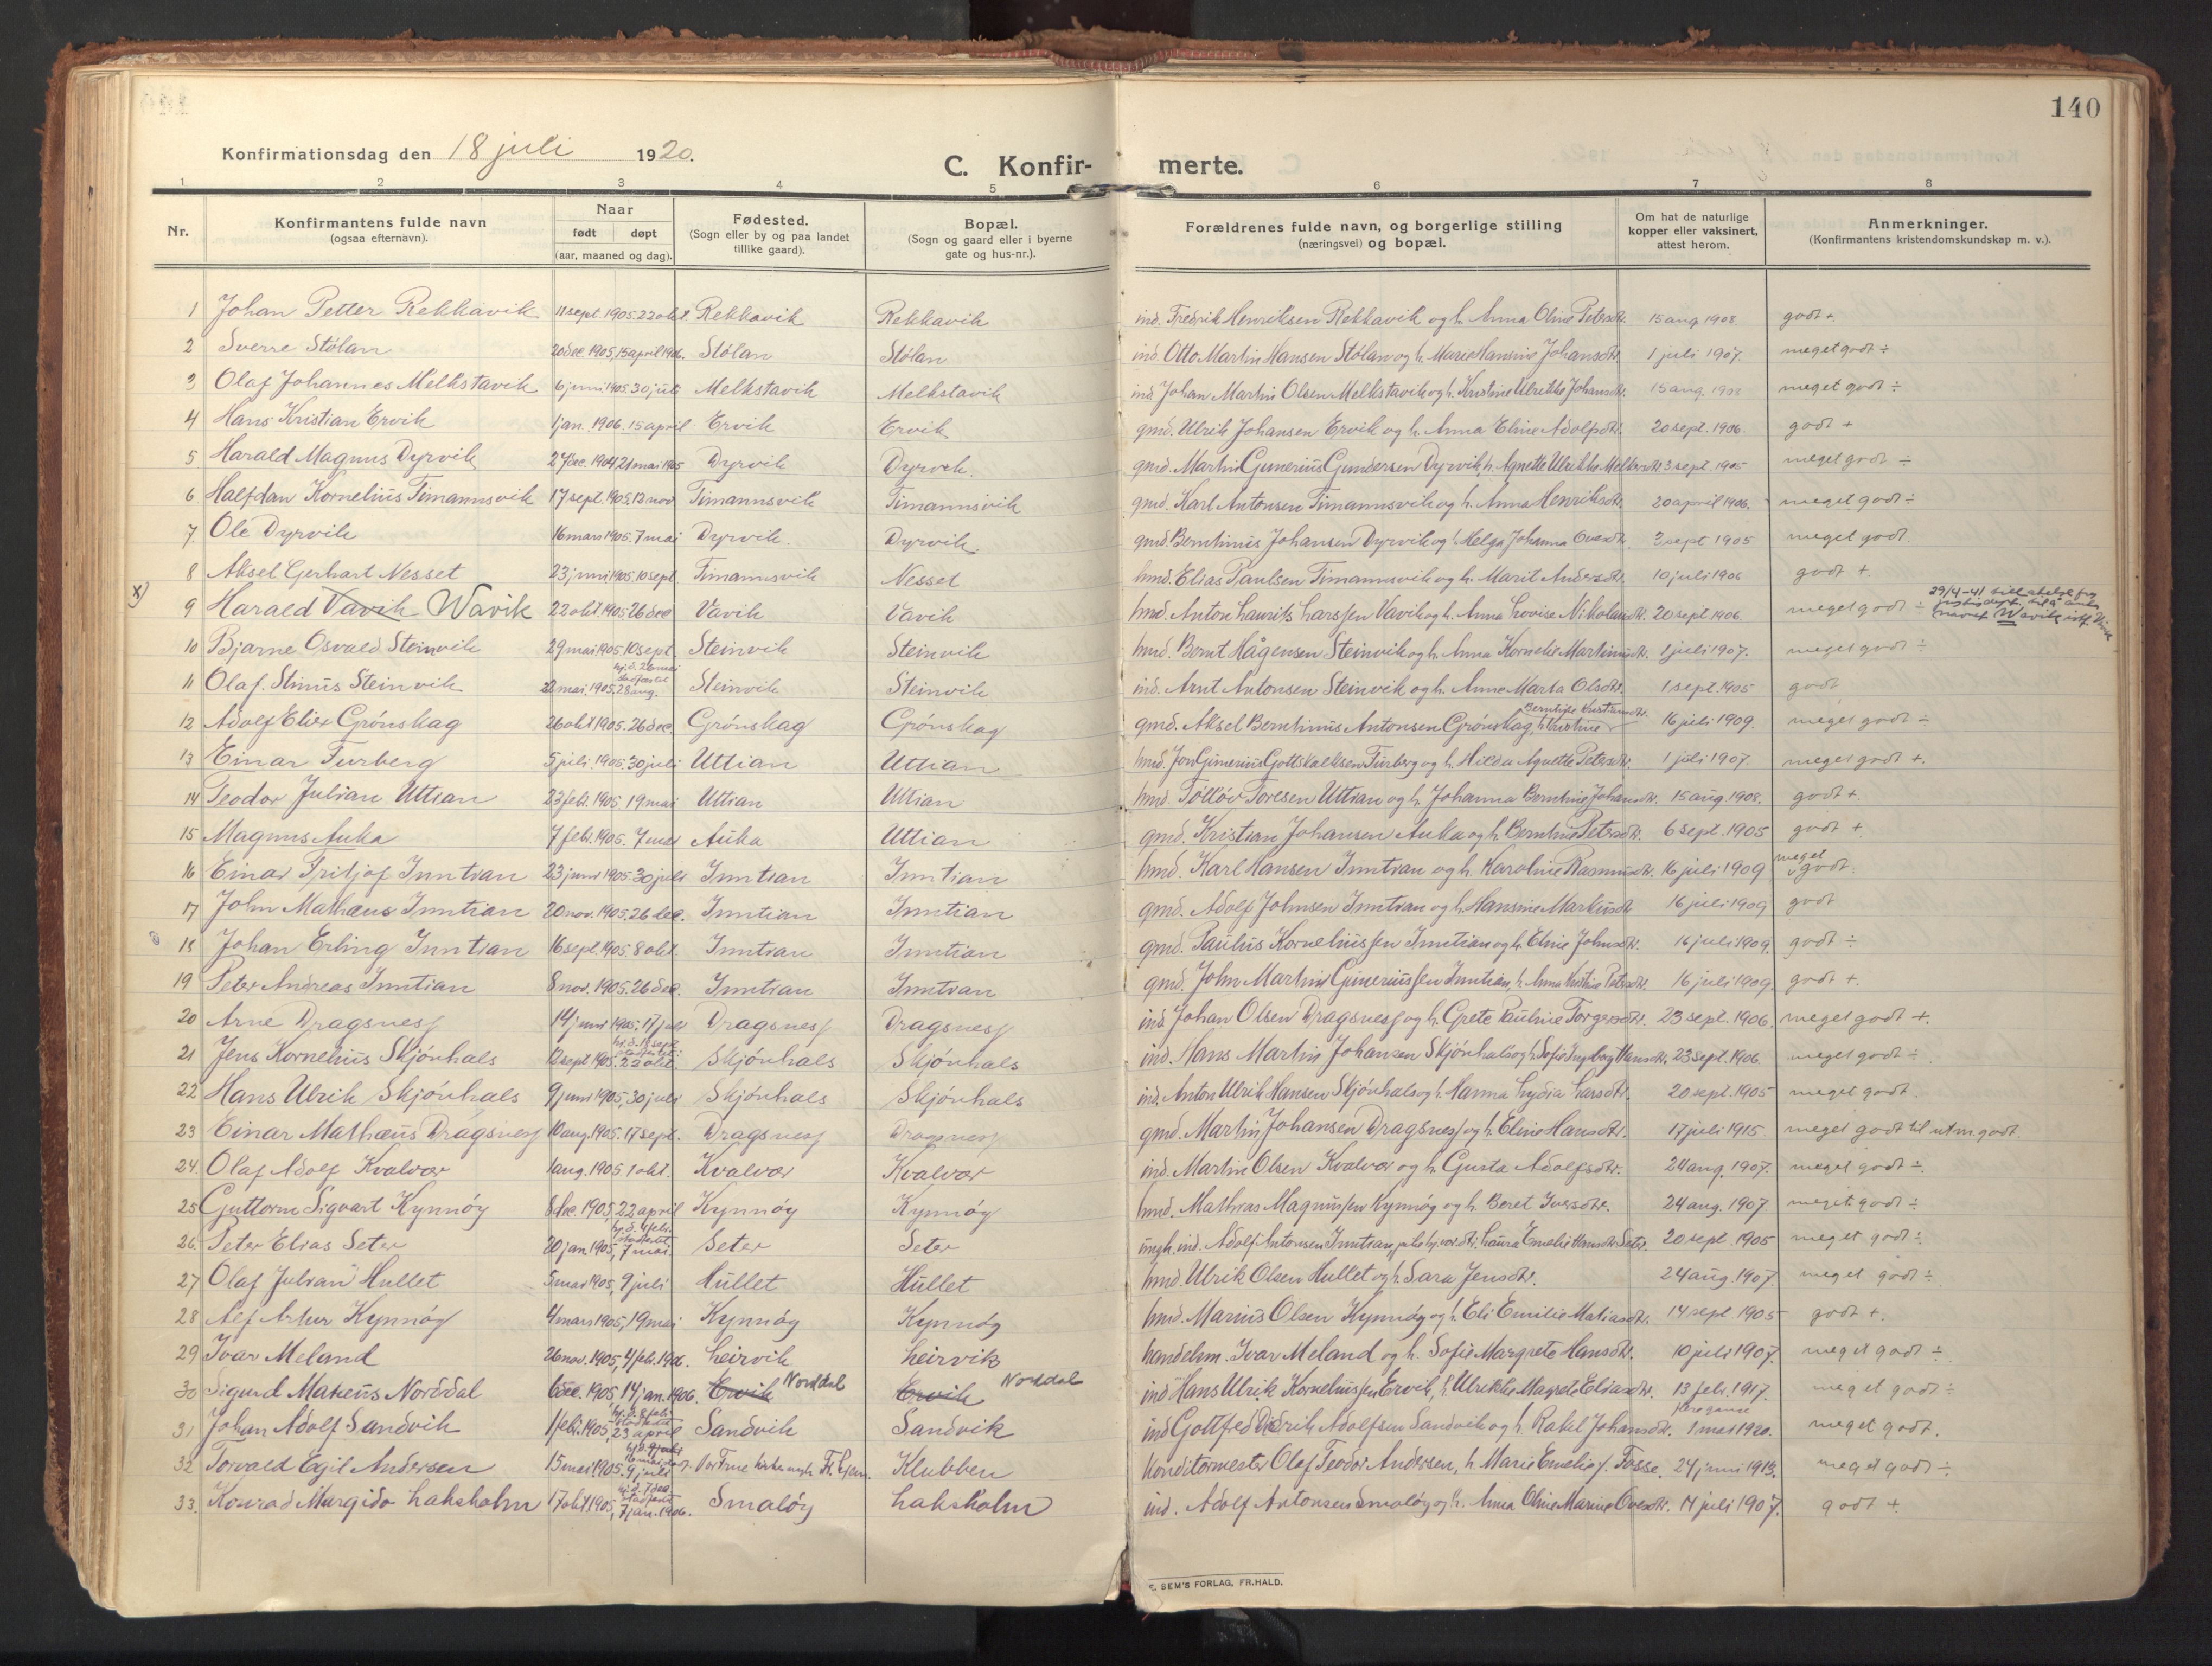 140
Konfirmationsdag den 18 juli 1920.
C. Konfir- merte.
1 2 3 4 5 6 7 8
Nr. Konfirmantens fulde navn (ogsaa efternavn). Naar født døpt (aar, maaned og dag). Fødested. (Sogn eller by og paa landet tillike gaard). Bopæl. (Sogn og gaard eller i byerne gate og hus-nr.). Forældrenes fulde navn, og borgerlige stilling (næringsvei) og bopæl. Om hat de naturlige kopper eller vaksinert, attest herom. Anmerkninger. (Konfirmantens kristendomskundskap m. v.).
1 Johan Petter Rekkavik 11 sept. 1905. 22 okt. Rekkavik Rekkavik ind. Fredrik Henriksen Rekkavik og h. Anna Oline Petersdtr. 15 aug 1908. godt +.
2 Sverre Stólan 20 dec. 1905, 15 april 1906. Stólan Stólan ind. Otto Martin Hansen Stólan og h. Marie Hansine Johansdtr. 1 juli 1907. meget godt ÷
3 Olaf Johannes Melkstavik 6 juni 1905. 30 juli Melkstavik Melkstavik ind. Johan Martin Olsen Melkstavik og h. Kristine Ulrikke Johansdtr. 15 aug. 1908 meget godt ÷
4 Hans Kristian Ervik 1 jan. 1906. 15 april Ervik Ervik gmd. Ulrik Johansen Ervik og h. Anna Eline Adolfsdtr. 20 sept. 1906. godt +
5 Harald Magnus Dyrvik 27 dec. 1904, 21 mai 1905 Dyrvik Dyrvik gmd. Martin Gunerius Gundersen Dyrvik h. Agnette Ulrikke 3 sept. 1905 meget godt ÷
6 Halfdan Kornelius Timannsvik 17 sept. 1905. 12 nov. Timannsvik Timannsvik gmd. Karl Antonsen Timannsvik og h. Anna Henriksdtr. 20 april 1906. meget godt ÷
7 Ole Dyrvik 16 mars 1905. 7 mai Dyrvik Dyrvik gmd. Berntinus Johansen Dyrvik og h. Helga Johanna Ovesdtr. 3 sept 1905 meget godt.
8 Aksel Gerhart Nesset 23 juni 1905. 10 sept. Timannsvik Nesset hmd. Elias Paulsen Timannsvik og h. Marit Andersdtr. 10 juli 1906 godt +.
x) 9 Harald Vavik Wavik 22 okt. 1905. 26 dec Vavik Vavik hmd. Anton Laurits Larssen Vavik og h. Anna Lovise Nikolaisdtr. 20 sept. 1906. meget godt ÷ 29/4-41
navnet Wavik
10 Bjarne Osvald Steinvik 29 mai 1905. 10 sept. Steinvik Steinvik hmd. Bernt Hågensen Steinvik og h. Anna Kornelie Martinusdtr. 1 juli 1907. meget godt ÷
hj. d. 26 mai stadfæstet
11 Olaf Stinus Steinvik 22 mai 1905. 28 aug. Steinvik Steinvik ind. Arnt Antonsen Steinvik og h. Anne Marta Olsdtr. 1 sept. 1905 godt
12 Adolf Elier Grónskag 26 okt 1905. 26 dec. Grónskag Grónskag gmd. Aksel Berntinus Antonsen Grónskag, h. Kristine Berntine Kristiansdtr. 16 juli 1909. meget godt ÷
13 Einar Furberg 5 juli 1905. 30 juli Uttian Uttian hmd. Jon Gunerius Gottskalksen Furberg og h. Hilda Agnette Petersdtr. 1 juli 1907. meget godt +.
14 Teodor Julian Uttian 23 feb. 1905. 19 mai Uttian Uttian hmd. Tollóv Toresen Uttian og h. Johanna Berntine Johansdtr. 15 aug. 1908. godt +.
15 Magnus Auka 7 feb. 1905. 7 mai Auka Uttian gmd. Kristian Johansen Auka og h. Berntine Petersdtr. 6 sept. 1905 godt +
16 Einar Fritjof Inntian 23 juni 1905. 30 juli Inntian Inntian hmd. Karl Hansen Inntian og h. Karoline Rasmusdtr. 16 juli 1909 meget godt.
17 John Mathæus Inntian 20 nov. 1905. 26 dec. Inntian Inntian gmd. Adolf Johnsen Inntian og h. Hansine Markusdtr. 16 juli 1909 godt
18 Johan Erling Inntian 16 sept. 1905. 8 okt. Inntian Inntian gmd. Paulus Korneliussen Inntian og h. Eline Johnsdtr. 16 juli 1909. godt ÷
19 Peter Andreas Inntian 8 nov. 1905. 26 dec. Inntian Inntian gmd. John Martin Guneriussen Inntian, h. Anna Kristine Petersdtr. 16 juli 1909. godt +.
20 Arne Dragsness 14 juni 1905. 17 juli Dragsness Dragsness ind. Johan Olsen Dragsness og h. Grete Pauline Torgersdtr. 23 sept. 1906. meget godt +.
21 Jens Kornelius Skjónhals 12 sept 1905. 22 okt. Skjónhals Skjónhals ind. Hans Martin Johansen Skjónhals og h. Sofie Ingeborg Hansdtr. 23 sept. 1906 meget godt ÷
22 Hans Ulrik Skjónhals 9 juni 1905, 30 juli Skjónhals Skjónhals ind. Anton Ulrik Hansen Skjónhals og h. Hanna Lydia Larsdtr. 20 sept. 1905 meget godt.
23 Einar Mathæus Dragsness 10 aug. 1905. 17 sept. Dragsness Dragsness gmd. Martin Johansen Dragsness og h. Eline Hansdtr. 17 juli 1915. meget godt til utm. godt.
24 Olaf Adolf Kvalvær 1 aug. 1905 1 okt. Kvalvær Kvalvær ind. Martin Olsen Kvalvær og h. Gusta Adolfsdtr. 24 aug. 1907. meget godt ÷
25 Guttorm Sigvart Kynnóy 8 dec. 1905, 22 april Kynnóy Kynnóy hmd. Mathias Magnussen Kynnóy og h. Beret Iversdtr. 24 aug. 1907 meget godt ÷
26 Peter Elias Seter 20 jan. 1905, 7 mai Seter Seter ungk. ind. Adolf Antonsen Inntian, Laura Emelie Hansdtr. Seter. 20 sept 1905 meget godt ÷
27 Olaf Julian Hullet 5 mai 1905, 9 juli Hullet Hullet hmd. Ulrik Olsen Hullet og h. Sara Jensdtr. 24 aug. 1907 meget godt ÷
28 Alf Artur Kynnóy 4 mars 1905, 19 mai Kynnóy Kynnóy hmd. Marius Olsen Kynnóy og h. Eli Emilie Matiasdtr. 14 sept. 1905 godt +.
29 Ivar Meland 26 nov. 1905, 4 feb. 1906. Leirvik Leirvik handelsm. Ivar Meland og h. Sofie Margrete Hansdtr. 10 juli 1907. meget godt ÷
30 Sigurd Mateus Norddal 6 dec. 1905, 14 jan. 1906. Ervik Norddal Ervik Norddal ind. Hans Ulrik Korneliussen Ervik, h. Ulrikke Magrete Eliasdtr. 13 feb. 1917. meget godt ÷
31 Johan Adolf Sandvik 1 feb. 1905, 23 april Sandvik Sandvik ind. Gottfred Didrik Adolfsen Sandvik og h. Rakel Johansdtr. flere gange 1 mai 1920. meget godt.
32 Torvald Egil Andersen 15 mai 1905. 9 juli Vor Frue kirke Tr.hjem. Klubben konditormester Olaf Teodor Andersen, h. Marie Emelie f. Fosse. 24 juni 1913. meget godt ÷
33 Konrad Margido Laksholm 17 okt. 1905, 7 jan. 1906. Smalóy Laksholm ind. Adolf Antonsen Smalóy og h. Anna Oline Marine Ovesdtr. 17 juli 1907. godt +
E. SEM'S FORLAG, FR.HALD.